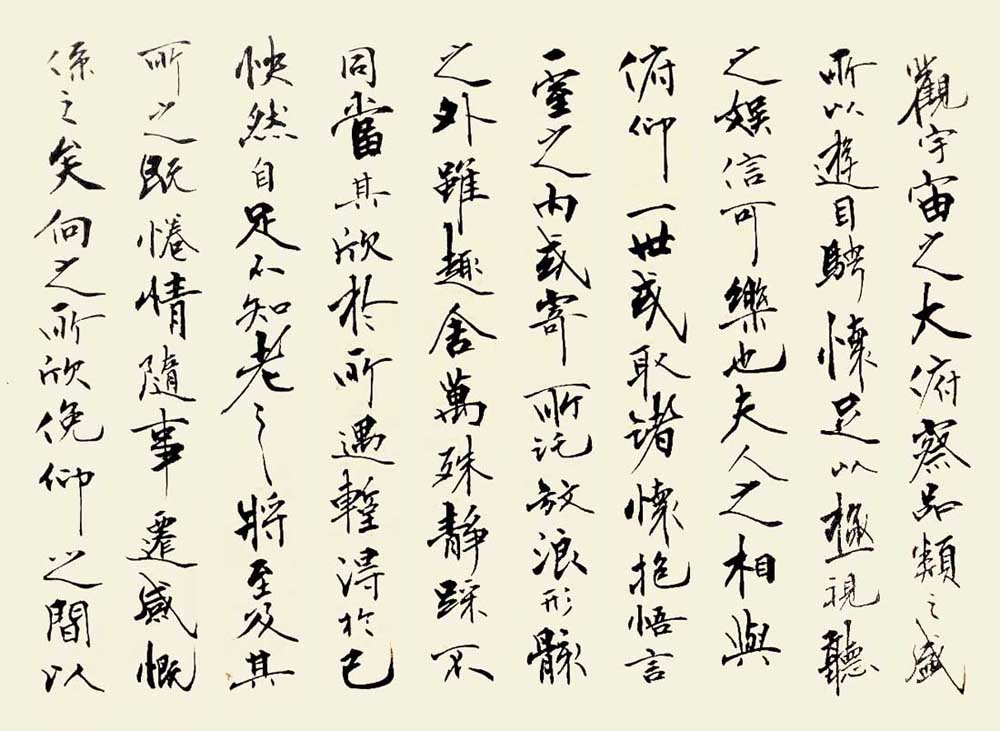 觀宇宙之大俯察品類之盛
所以遊目騁懷足以極視聽
之娱信可樂也夫人之相與
俯仰一世或取諸懷抱悟言
一室之內或寄所託放浪形骸
之外雖趣舍萬殊靜躁不
同當其欣於所遇暫得於己
怏然自足不知老之將至及其
所之既惓情隨事遷感慨
係之矣向之所欣俛仰之間以